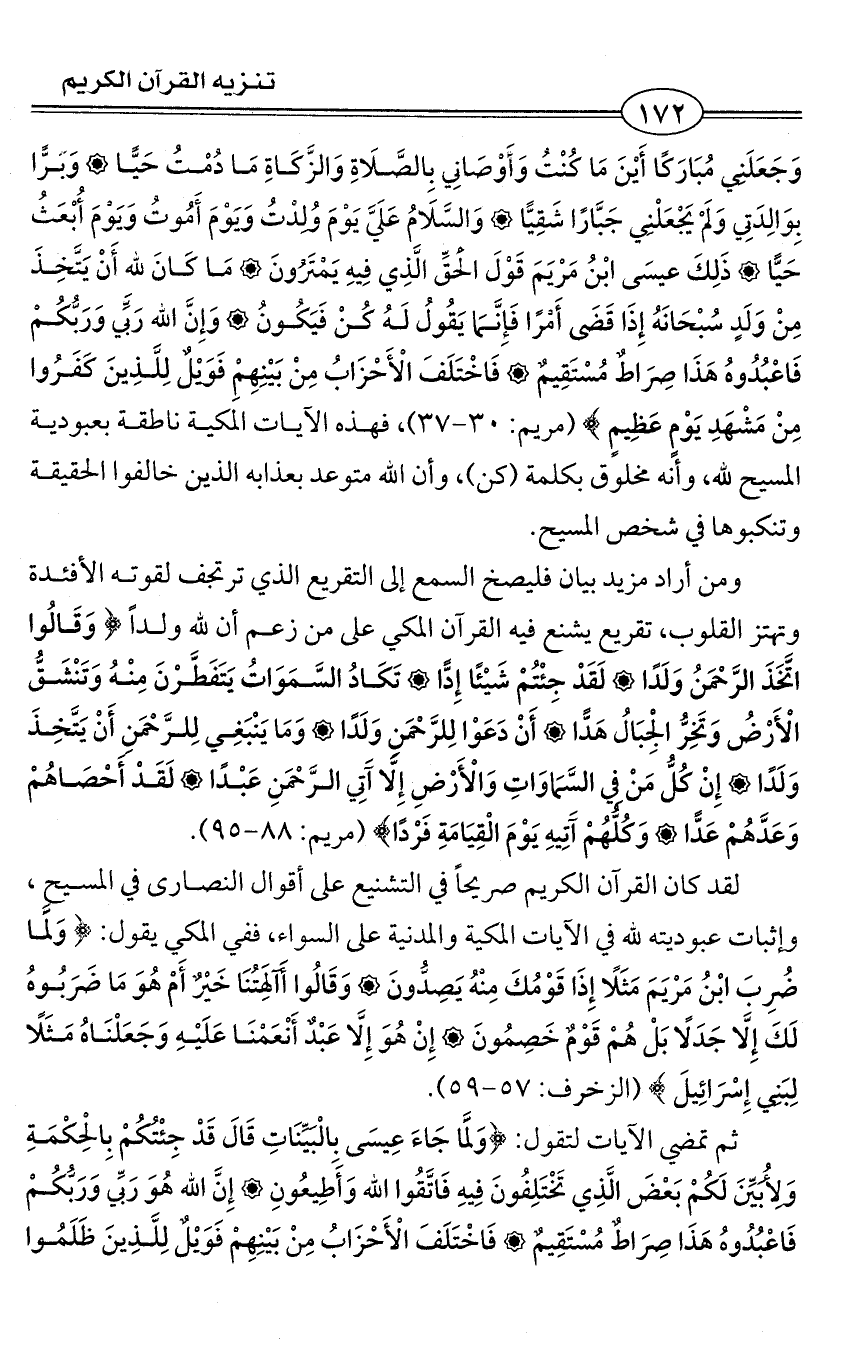 تنزيه القرآن الكريم
١٧٢
وَجَعَلَنِي مُبَارَكًا أَيْنَ مَا كُنْتُ وَأَوْصَانِي بِالصَّلَاةِ وَالزَّكَاةِ مَا دُمْتُ حَيًّا ۞ وَبَرًّا
بِوَالِدَتِي وَلَمْ يَجْعَلْنِي جَبَّارًا شَقِيًّا ۞ وَالسَّلَامُ عَلَيَّ يَوْمَ وُلِدْتُ وَيَوْمَ أَمُوتُ وَيَوْمَ أُبْعَثُ
حَيًّا ۞ ذَلِكَ عِيسَى ابْنُ مَرْيَمَ قَوْلَ الْحَقِّ الَّذِي فِيهِ يَمْتَرُونَ ۞ مَا كَانَ لله أَنْ يَتَّخِذَ
مِنْ وَلَدٍ سُبْحَانَهُ إِذَا قَضَى أَمْرًا فَإِنَّمَا يَقُولُ لَهُ كُنْ فَيَكُونُ ۞ وَإِنَّ الله رَبِّي وَرَبُّكُمْ
فَاعْبُدُوهُ هَذَا صِرَاطٌ مُسْتَقِيمٌ ۞ فَاخْتَلَفَ الْأَحْزَابُ مِنْ بَيْنِهِمْ فَوَيْلٌ لِلَّذِينَ كَفَرُوا
مِنْ مَشْهَدِ يَوْمٍ عَظِيمٍ ﴾ (مريم: ٣٠-٣٧)، فهذه الآيات المكية ناطقة بعبودية
المسيح لله، وأنه مخلوق بكلمة (كن)، وأن الله متوعد بعذابه الذين خالفوا الحقيقة
وتنكبوها في شخص المسيح.
ومن أراد مزيد بيان فليصخ السمع إلى التقريع الذي ترتجف لقوته الأفئدة
وتهتز القلوب، تقريع يشنع فيه القرآن المكي على من زعم أن لله ولداً ﴿ وَقَالُوا
اتَّخَذَ الرَّحْمَنُ وَلَدًا ۞ لَقَدْ جِئْتُمْ شَيْئًا إِدًّا ۞ تَكَادُ السَّمَوَاتُ يَتَفَطَّرْنَ مِنْهُ وَتَنْشَقُّ
الْأَرْضُ وَتَخِرُّ الْجِبَالُ هَدًّا ۞ أَنْ دَعَوْا لِلرَّحْمَنِ وَلَدًا ۞ وَمَا يَنْبَغِي لِلرَّحْمَنِ أَنْ يَتَّخِذَ
وَلَدًا ۞ إِنْ كُلُّ مَنْ فِي السَّمَاوَاتِ وَالْأَرْضِ إِلَّا آتِي الرَّحْمَنِ عَبْدًا ۞ لَقَدْ أَحْصَاهُمْ
وَعَدَّهُمْ عَدًّا ۞ وَكُلُّهُمْ آتِيهِ يَوْمَ الْقِيَامَةِ فَرْدًا﴾ (مريم: ٨٨-٩٥).
لقد كان القرآن الكريم صريحاً في التشنيع على أقوال النصارى في المسيح ،
وإثبات عبوديته لله في الآيات المكية والمدنية على السواء، ففي المكي يقول: ﴿ وَلَمَّا
ضُرِبَ ابْنُ مَرْيَمَ مَثَلًا إِذَا قَوْمُكَ مِنْهُ يَصِدُّونَ ۞ وَقَالُوا أَآلِهَتُنَا خَيْرٌ أَمْ هُوَ مَا ضَرَبُوهُ
لَكَ إِلَّا جَدَلًا بَلْ هُمْ قَوْمٌ خَصِمُونَ ۞ إِنْ هُوَ إِلَّا عَبْدٌ أَنْعَمْنَا عَلَيْهِ وَجَعَلْنَاهُ مَثَلًا
لِبَنِي إِسْرَائِيلَ ﴾ (الزخرف: ٥٧-٥٩).
ثم تمضي الآيات لتقول: ﴿وَلَمَّا جَاءَ عِيسَى بِالْبَيِّنَاتِ قَالَ قَدْ جِئْتُكُمْ بِالْحِكْمَةِ
وَلِأُبَيِّنَ لَكُمْ بَعْضَ الَّذِي تَخْتَلِفُونَ فِيهِ فَاتَّقُوا الله وَأَطِيعُونِ ۞ إِنَّ الله هُوَ رَبِّي وَرَبُّكُمْ
فَاعْبُدُوهُ هَذَا صِرَاطٌ مُسْتَقِيمٌ ۞ فَاخْتَلَفَ الْأَحْزَابُ مِنْ بَيْنِهِمْ فَوَيْلٌ لِلَّذِينَ ظَلَمُوا